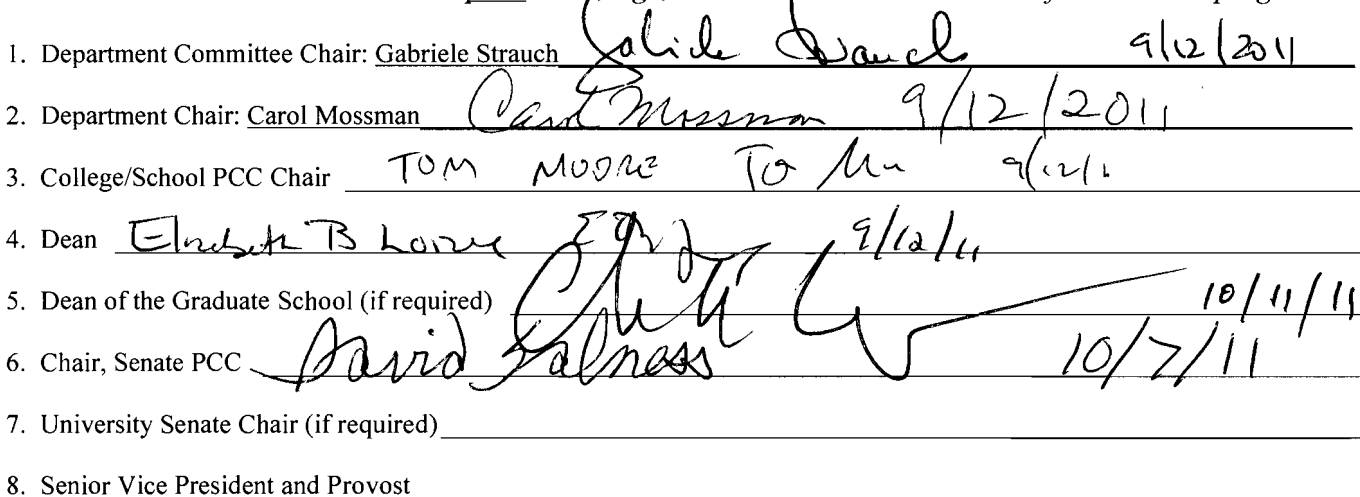 1. Department Committee Chair: Gabriele Strauch 9/12/2011
2. Department Chair: Carol Mossman Carol Mossman 9/12/2011
3. College/School PCC Chair TOM MOORE
4. Dean Elizabeth B 9/12/11
5. Dean of the Graduate School (if required) 10/11/11
6. Chair, Senate PCC David Salness 10/7/11
7. University Senate Chair (if required)
8. Senior Vice President and Provost